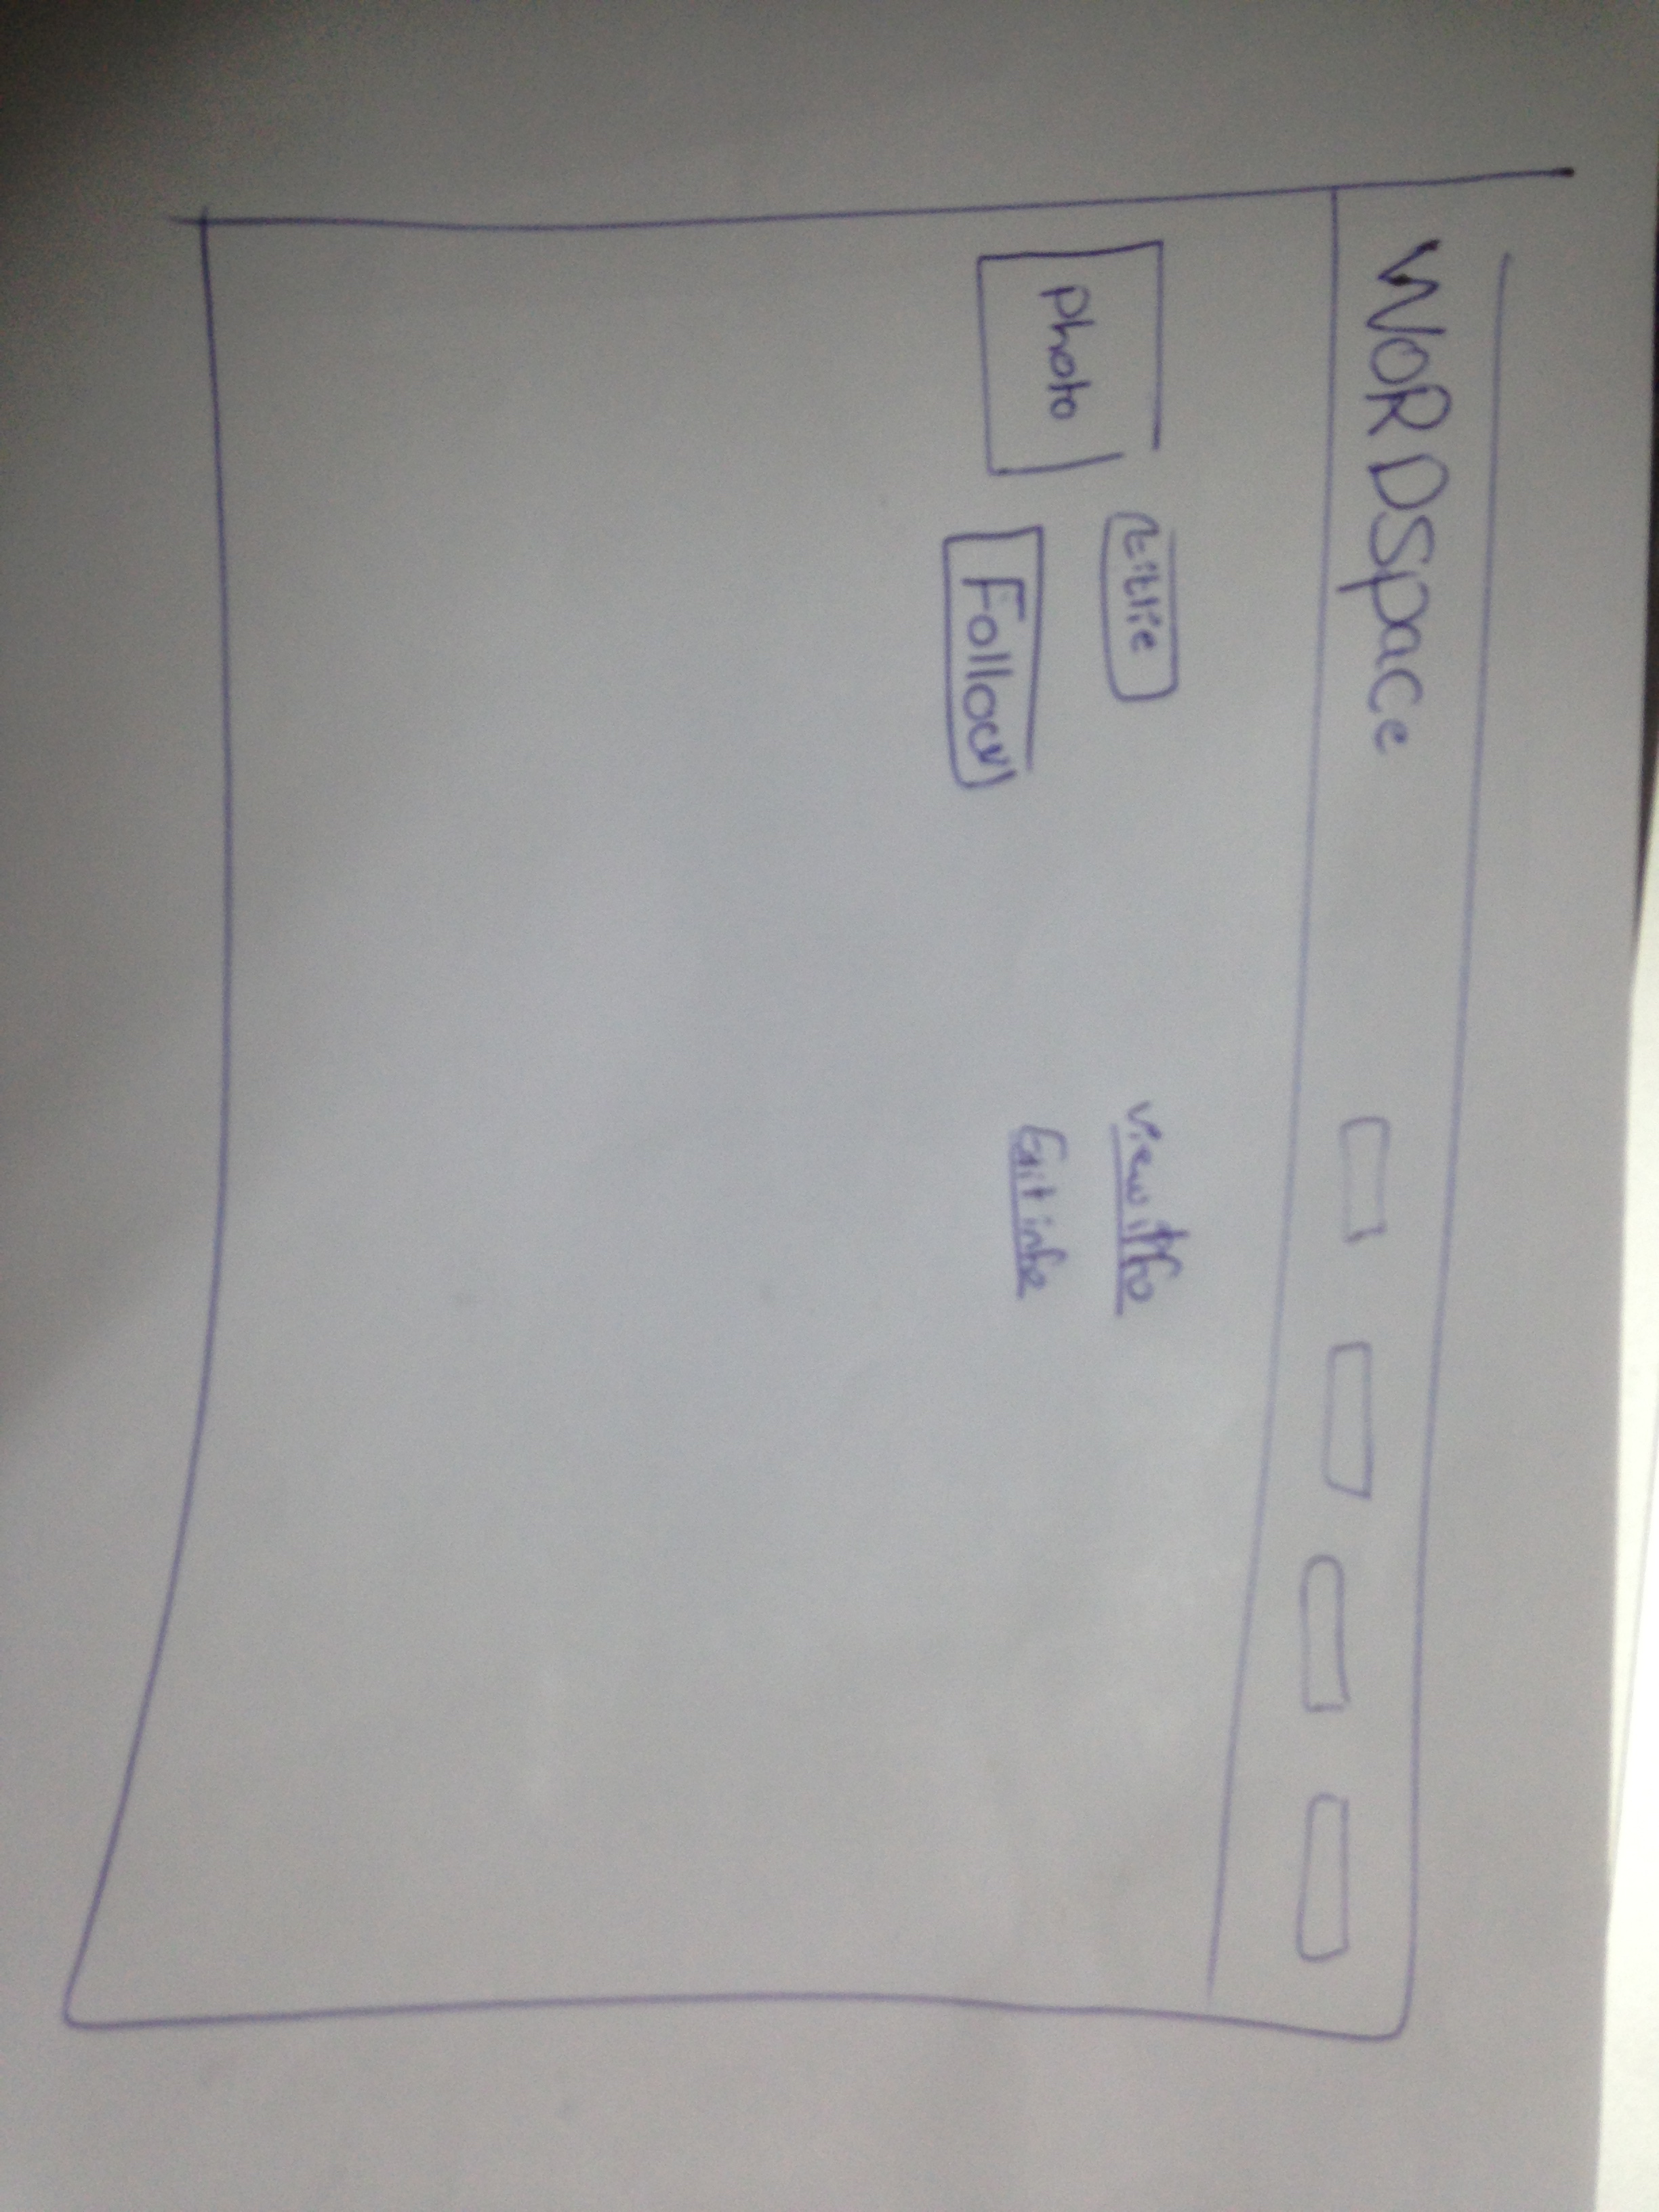 WORDSpace
Photo
tittie
Follow
view info
Edit info